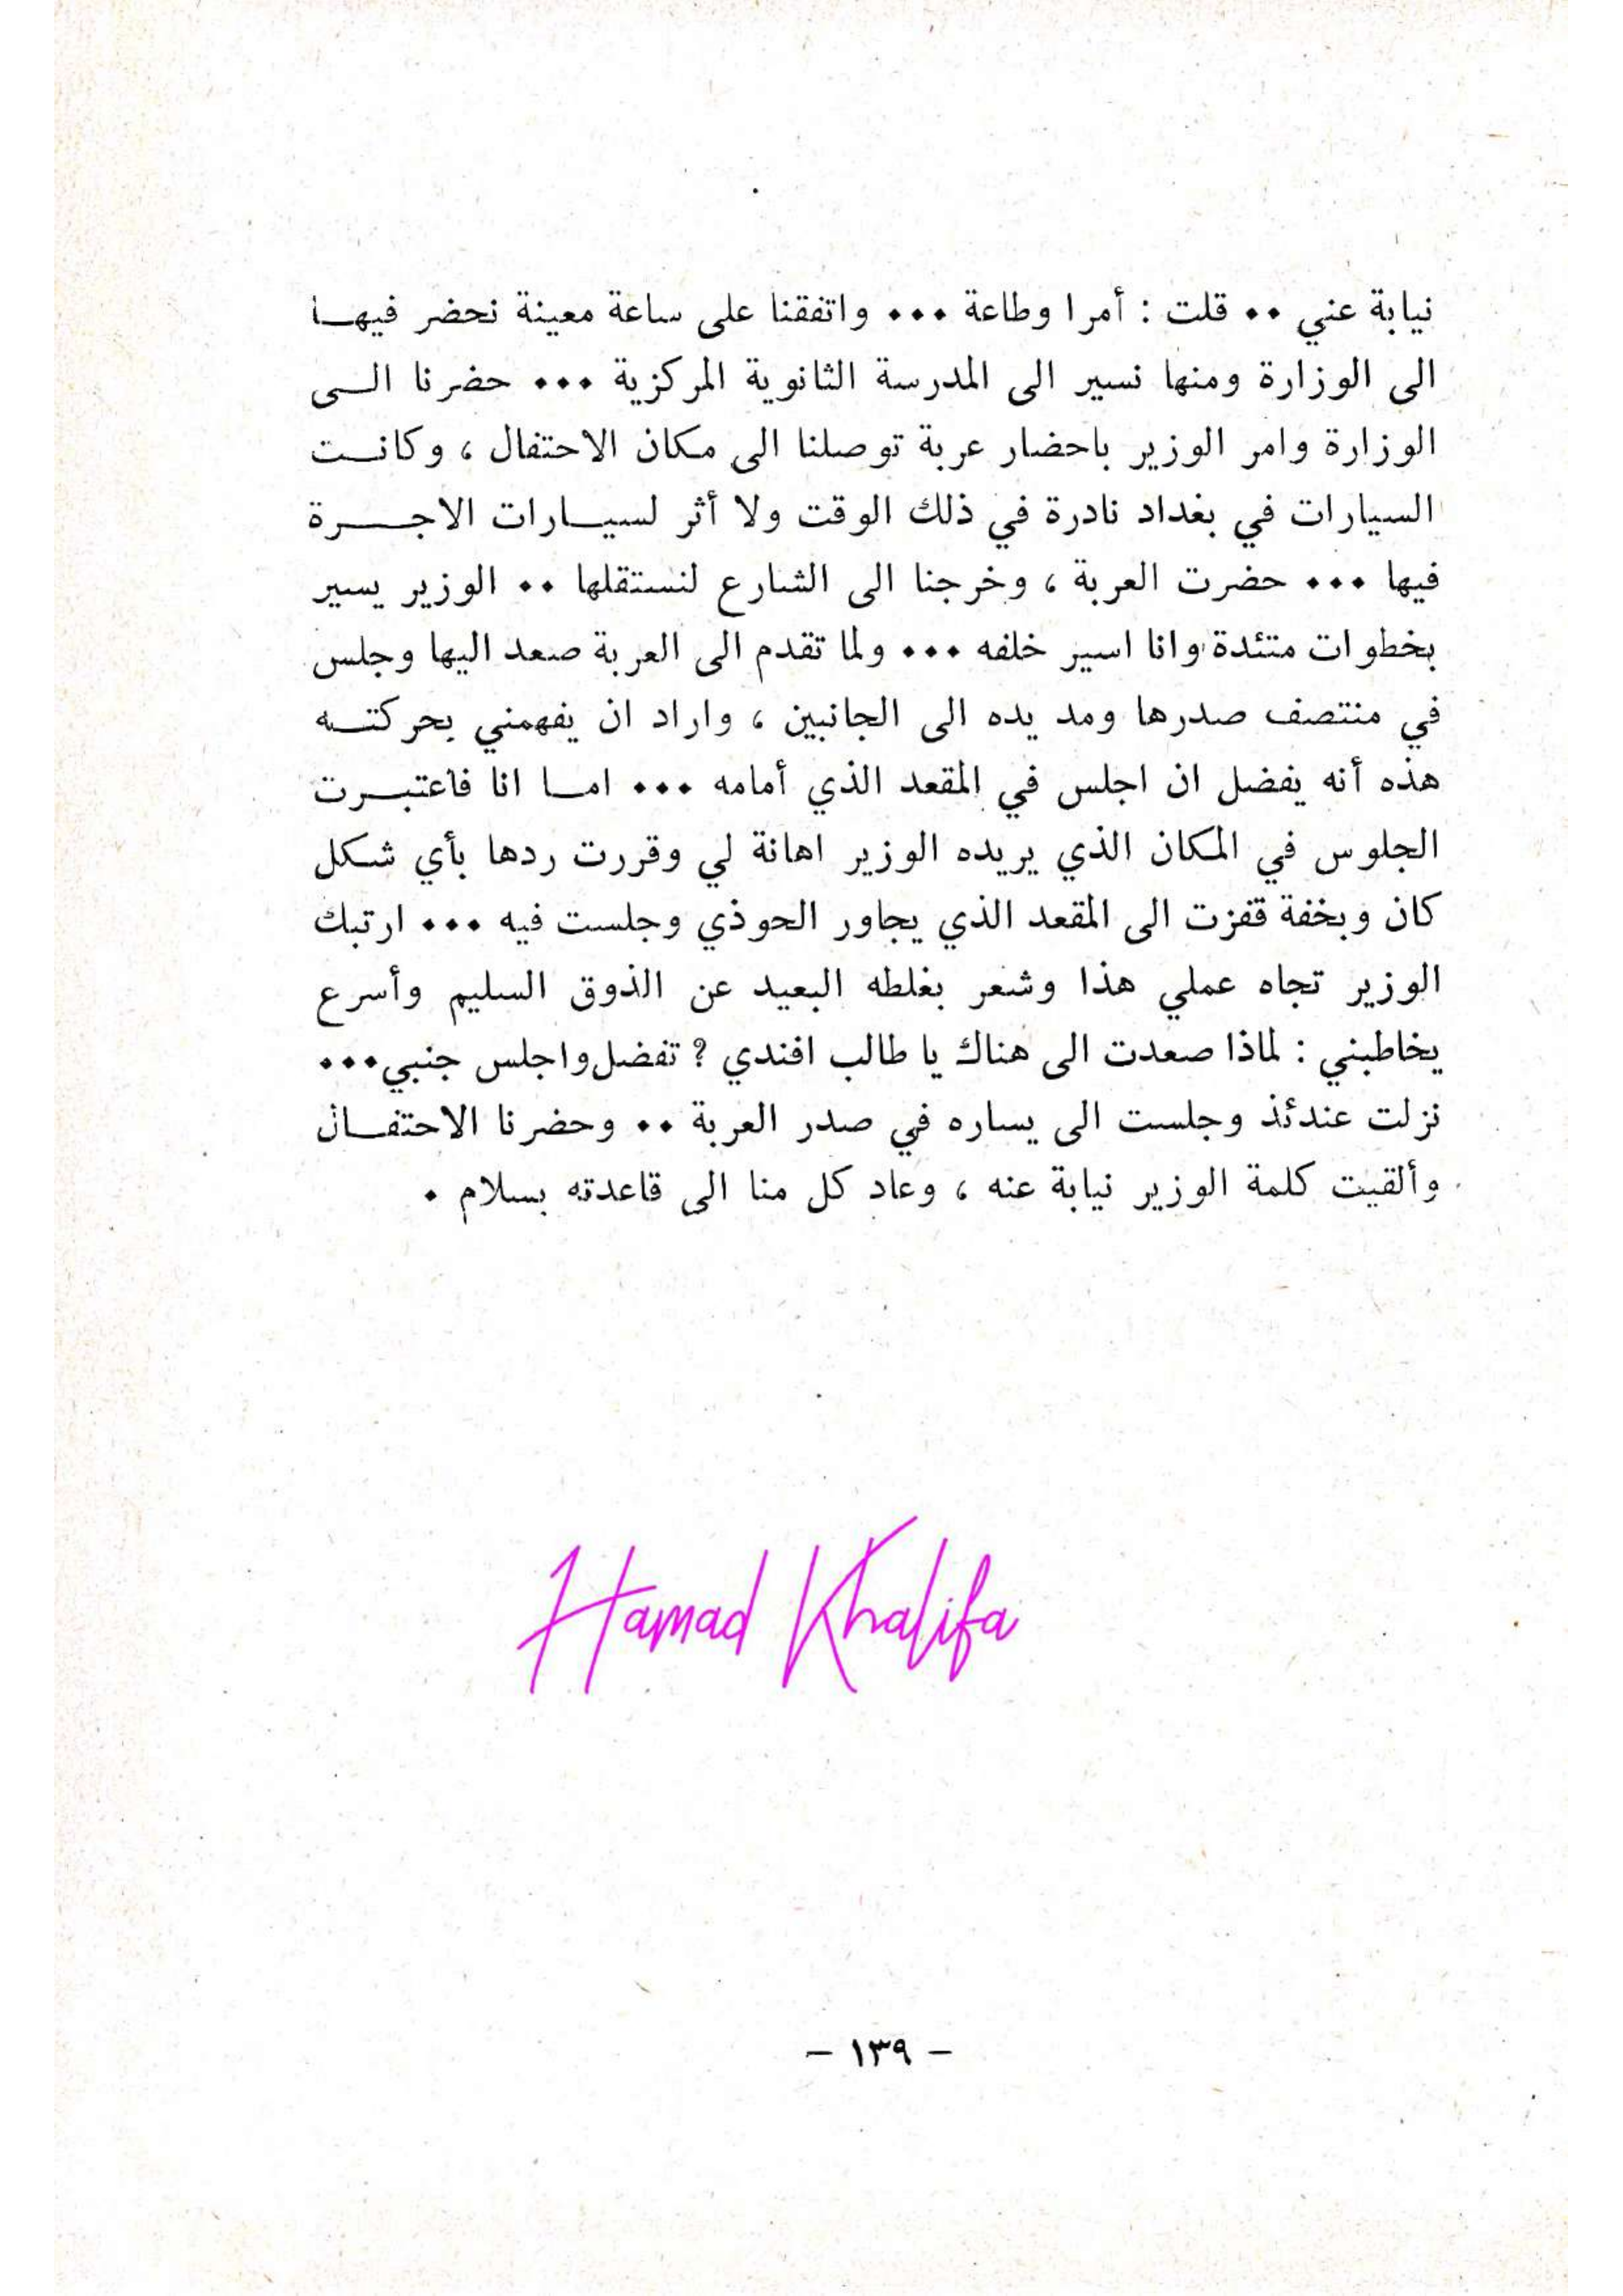 نيابة عني ٠٠ قلت : أمرا وطاعة ٠٠٠ واتفقنا على ساعة معينة نحضر فيهـا
الى الوزارة ومنها نسير الى المدرسة الثانوية المركزية ٠٠٠ حضرنا الـى
الوزارة وامر الوزير باحضار عربة توصلنا الى مكان الاحتفال ، وكانـت
السيارات في بغداد نادرة في ذلك الوقت ولا أثر لسيـارات الاجـرة
فيها ٠٠٠ حضرت العربة ، وخرجنا الى الشارع لنستقلها ٠٠ الوزير يسير
بخطوات متئدة وانا اسير خلفه ٠٠٠ ولما تقدم الى العربة صعد اليها وجلس
في منتصف صدرها ومد يده الى الجانبين ، واراد ان يفهمني بحركتـه
هذه أنه يفضل ان اجلس في المقعد الذي أمامه ٠٠٠ امـا انا فاعتبـرت
الجلوس في المكان الذي يريده الوزير اهانة لي وقررت ردها بأي شكل
كان وبخفة قفزت الى المقعد الذي يجاور الحوذي وجلست فيه ٠٠٠ ارتبك
الوزير تجاه عملي هذا وشعر بغلطه البعيد عن الذوق السليم وأسرع
يخاطبني : لماذا صعدت الى هناك يا طالب افندي ? تفضل واجلس جنبي٠٠٠
نزلت عندئذ وجلست الى يساره في صدر العربة ٠٠ وحضرنا الاحتفـال
وألقيت كلمة الوزير نيابة عنه ، وعاد كل منا الى قاعدته بسلام ٠
Hamad Khalifa
– ١٣٩ –